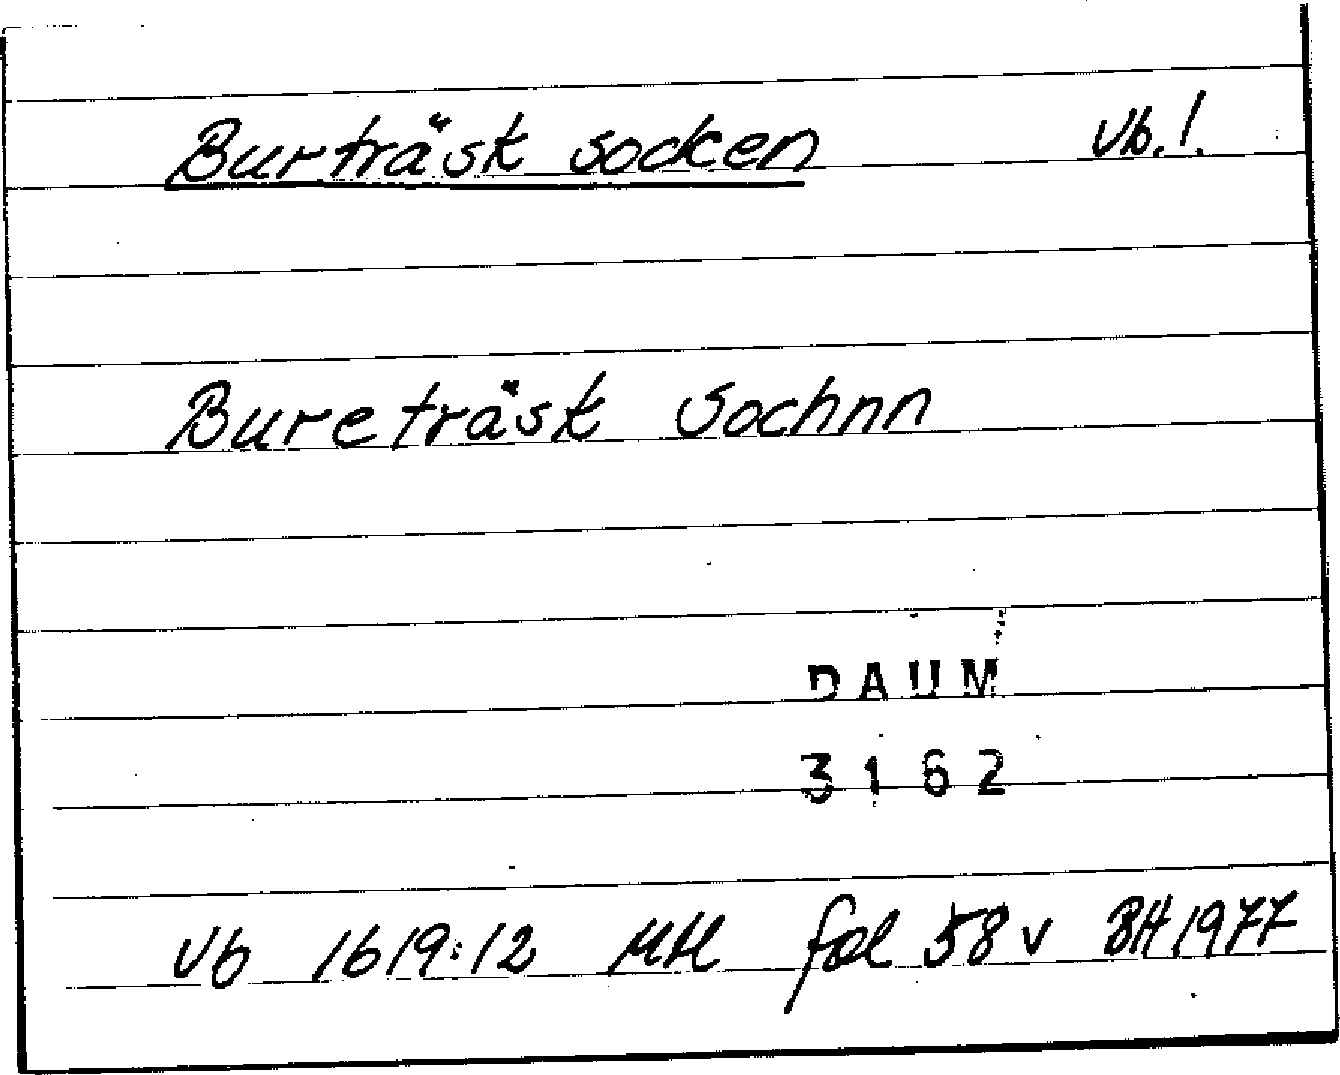 Burträsk socken Vb. l.
Bureträsk Sochnn
DAUM
3162
Vb 1619:12 MH fol 58 v BH 1977